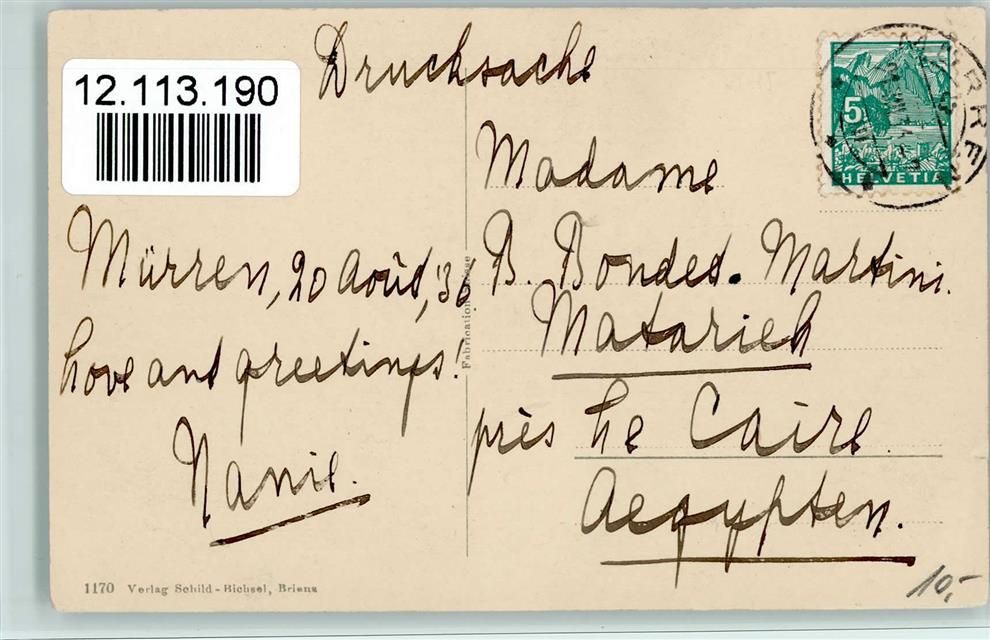 12.113.190
Drucksache
MÜRREN
5
HELVETIA
Madame
B. Bondet. Martini.
Matarieh
près Le Caire
Aegypten.
Mürren, 20 Août, '36
Love and greetings!
Nanie.
Fabrication Suisse
1170 Verlag Schild-Bichsel, Brienz
10,-